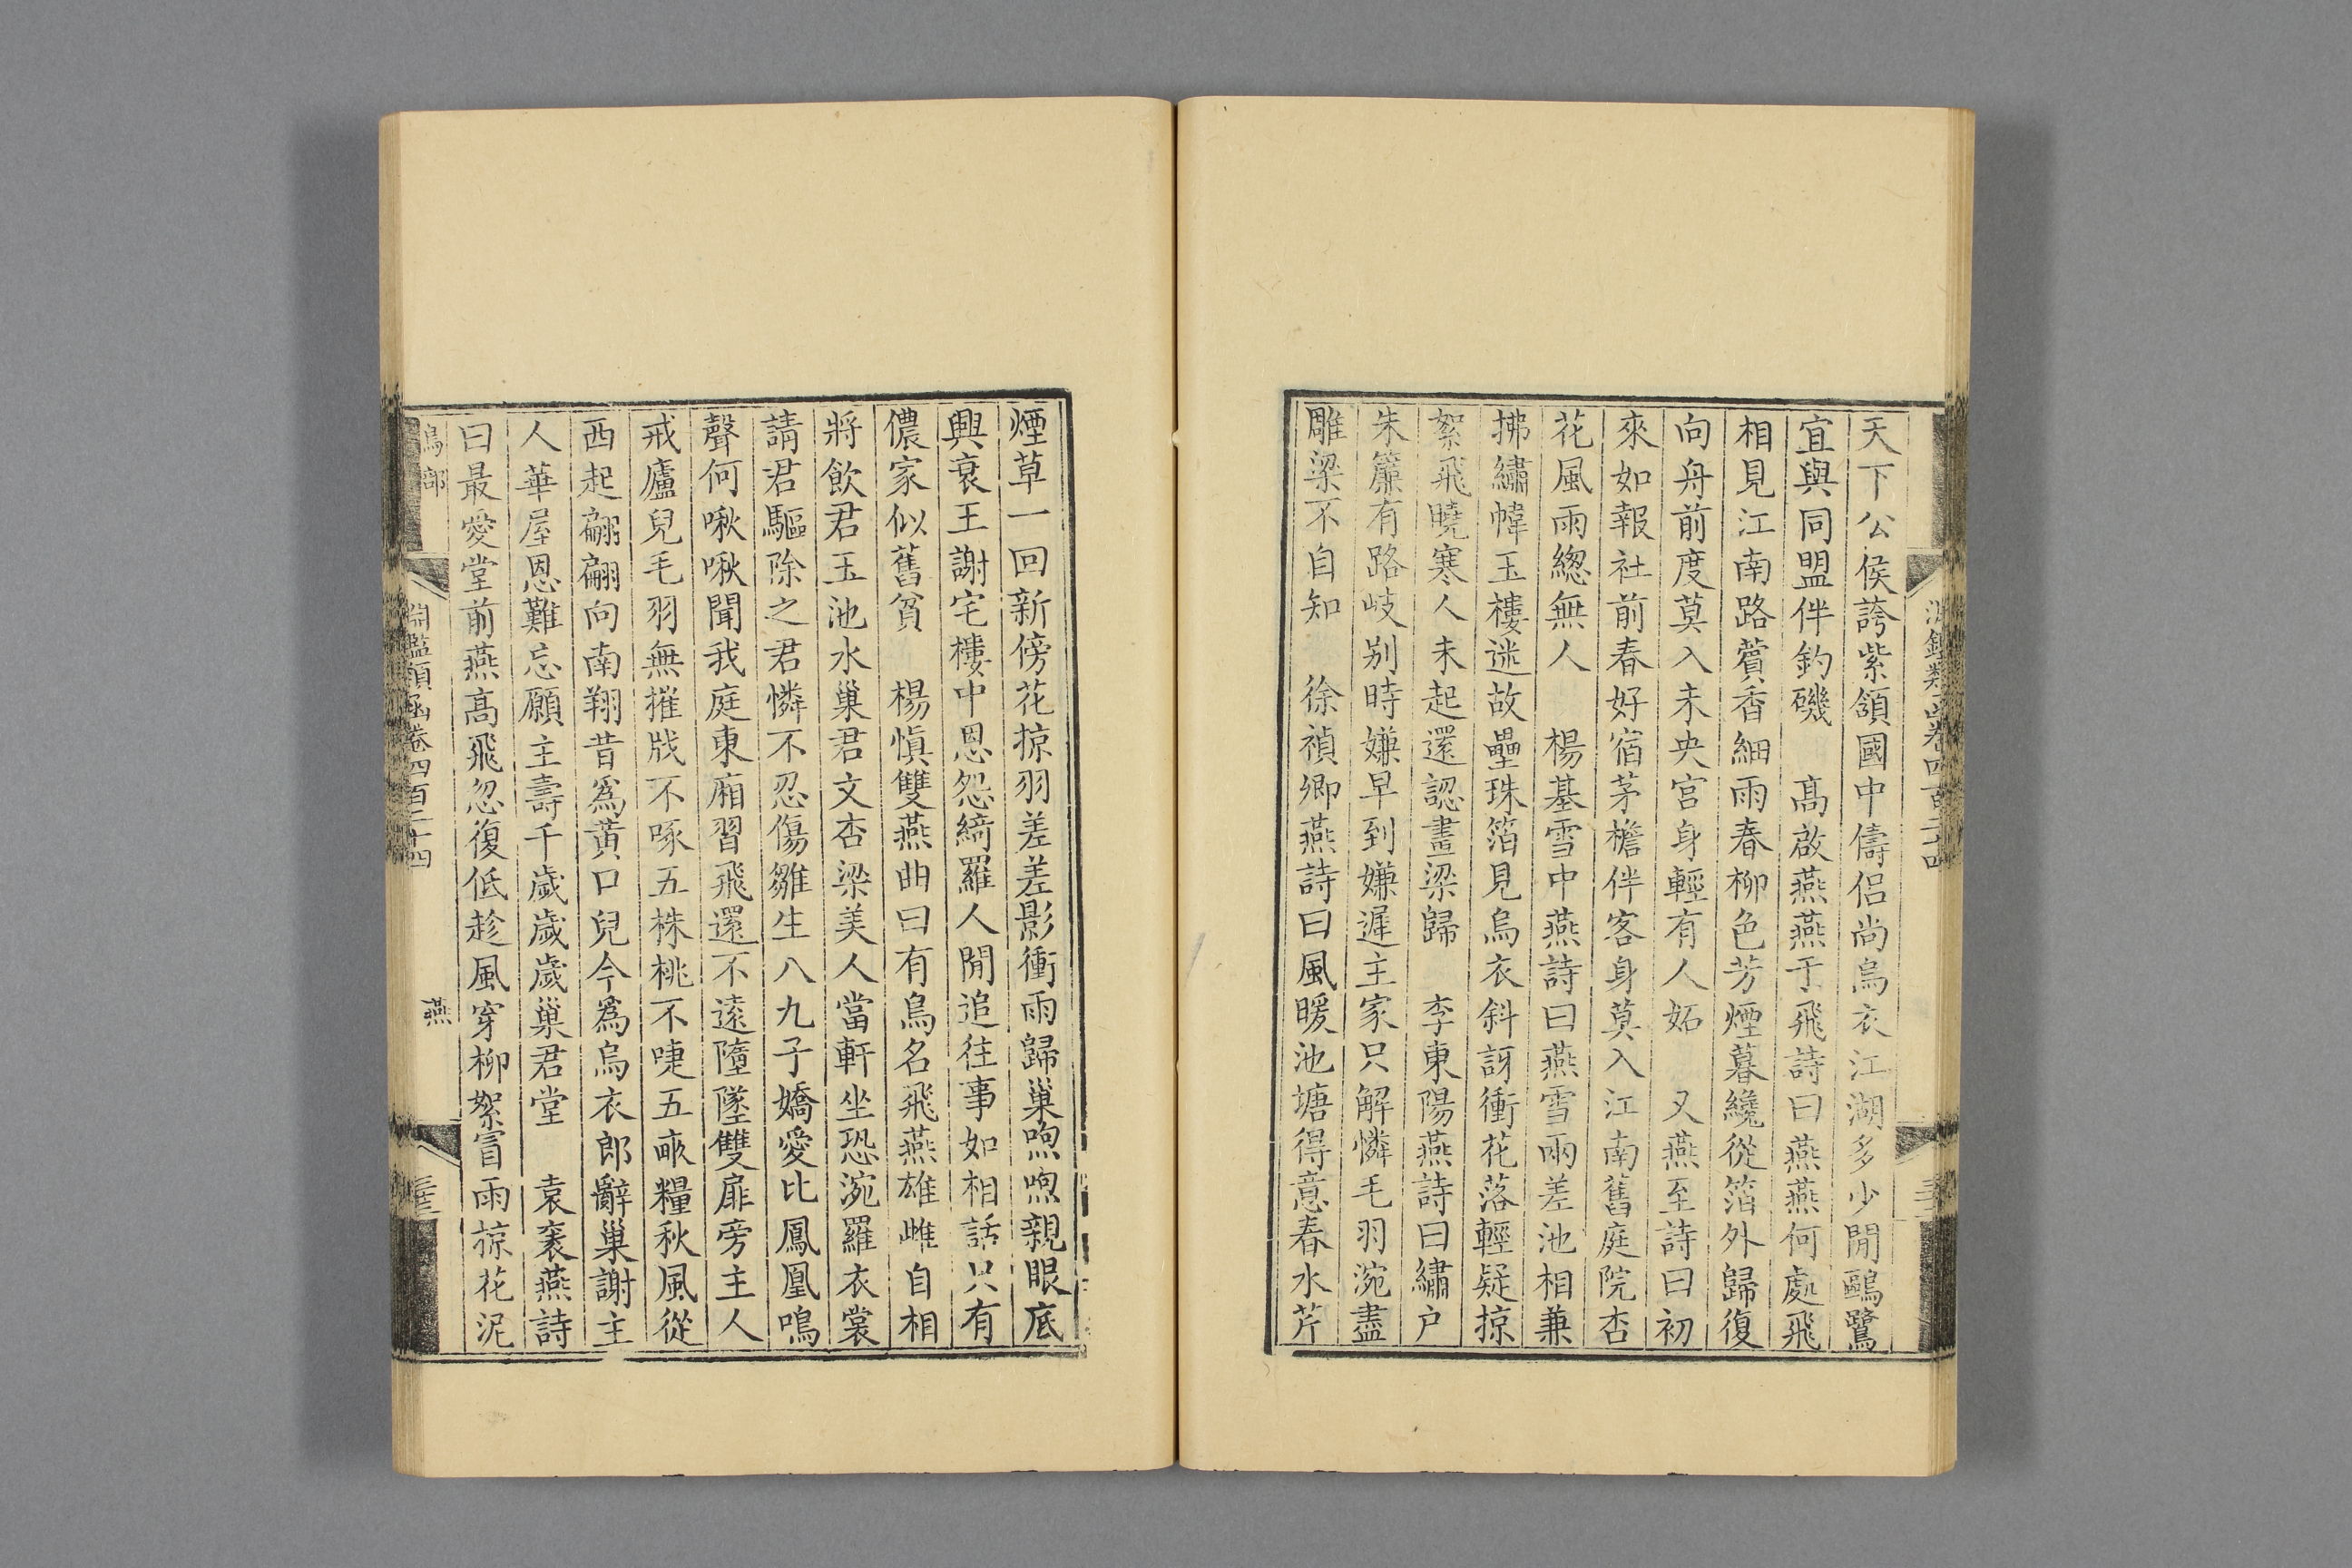 天下公侯誇紫頷國中儔侣尚烏衣江湖多少閒鷗鷺
宜與同盟伴釣磯　髙啟燕燕于飛詩曰燕燕何處飛
相見江南路蘋香細雨春柳色芳煙暮纔從箔外歸復
向舟前度莫入未央宫身輕有人妬　又燕至詩曰初
來如報社前春好宿茅檐伴客身莫入江南舊庭院杏
花風雨總無人　楊基雪中燕詩曰燕雪兩差池相兼
拂繡幃玉樓迷故壘珠箔見烏衣斜訝衝花落輕疑掠
絮飛曉寒人未起還認畫梁歸　李東陽燕詩曰繡户
朱簾有路岐别時嫌早到嫌遲主家只解憐毛羽涴盡
雕梁不自知　徐禎卿燕詩曰風暖池塘得意春水芹
煙草一回新傍花掠羽差差影衝雨歸巢喣喣親眼底
興衰王謝宅樓中恩怨綺羅人閒追往事如相話只有
儂家似舊貧　楊愼雙燕曲曰有鳥名飛燕雄雌自相
將飲君玉池水巢君文杏梁美人當軒坐恐涴羅衣裳
請君驅除之君憐不忍傷雛生八九子嬌愛比鳳凰鳴
聲何啾啾聞我庭東廂習飛還不遠墮墜雙扉旁主人
戒廬兒毛羽無摧戕不啄五株桃不啑五畝糧秋風從
西起翩翩向南翔昔爲黄口兒今爲烏衣郎辭巢謝主
人華屋恩難忘願主壽千歲歲歲巢君堂　袁袠燕詩
曰最愛堂前燕髙飛忽復低趁風穿柳絮冒雨掠花泥
鳥部　淵鑑類函卷四百二十四　燕